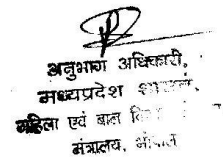 अनुभाग अधिकारी,
मध्यप्रदेश शासन,
महिला एवं बाल
मंत्रालय, भोपाल